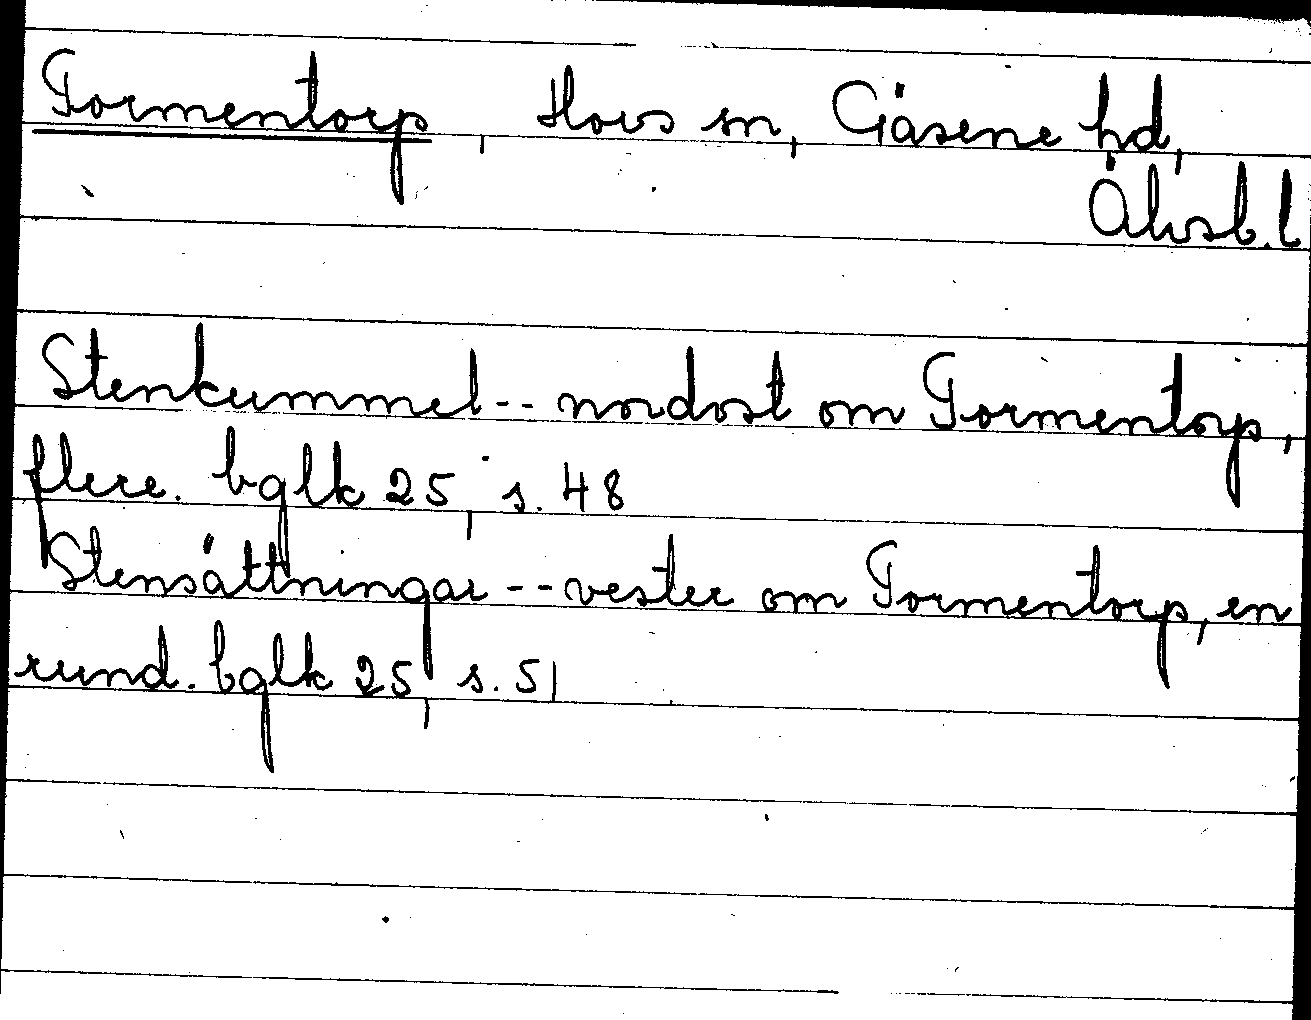 Tormentorp, Hovs sn, Gäsene hd,
Älvsb. l
Stenkummel -- nordost om Tormentorp,
flere. bglk 25, s. 48
Stensättningar -- vester om Tormentorp, en
rund. bglk 25, s. 51